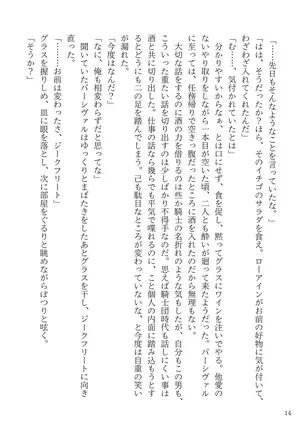 「……先日もそんなようなことを言っていたな」
「はは、そうだったか？ほら、そのイチゴのサラダを食え。ローアインがお前の好物に気が付いて、
わざわざ入れてくれたんだ」
「む……、気付かれていたとは」
分かりやすいからなぁ、とは口にせず、食を促し、黙ってグラスにワインを注いでやる。他愛の
ないやり取りをしながら一本目が空いた頃、二人とも酔いが廻って来たようだった。パーシヴァル
に至っては、任務帰りで空きっ腹だったところに酒を入れたのだから無理もない。
大切な話をするのに酒の力を借りるのは些か騎士の名折れのような気もしたが、自分もこの男も、
こういった重たい話を切り出すのは少しばかり不得手なのだ。思えば騎士団時代も話しにくい事は
酒と共に切り出した。仕事の話なら幾らでも平気で喋れるのに、こと個人の内面に踏み込もうとす
るとどうにも二の足を踏んでしまう。己も駄目なところが変わっていないな、と今度は自重の笑い
が漏れた。
「今度はなんだ？」
「な、俺も相変わらずだと思ってな」
聞いていたパーシヴァルはゆっくりとまばたきをしたあとグラスを干し、ジークフリートに向き
直った。
「……お前は変わったさ、ジークフリート」
グラスを握りしめ、皿に眼を落とし、次に部屋をぐるりと眺めながらぽつりと呟く。
「そうか？」
14